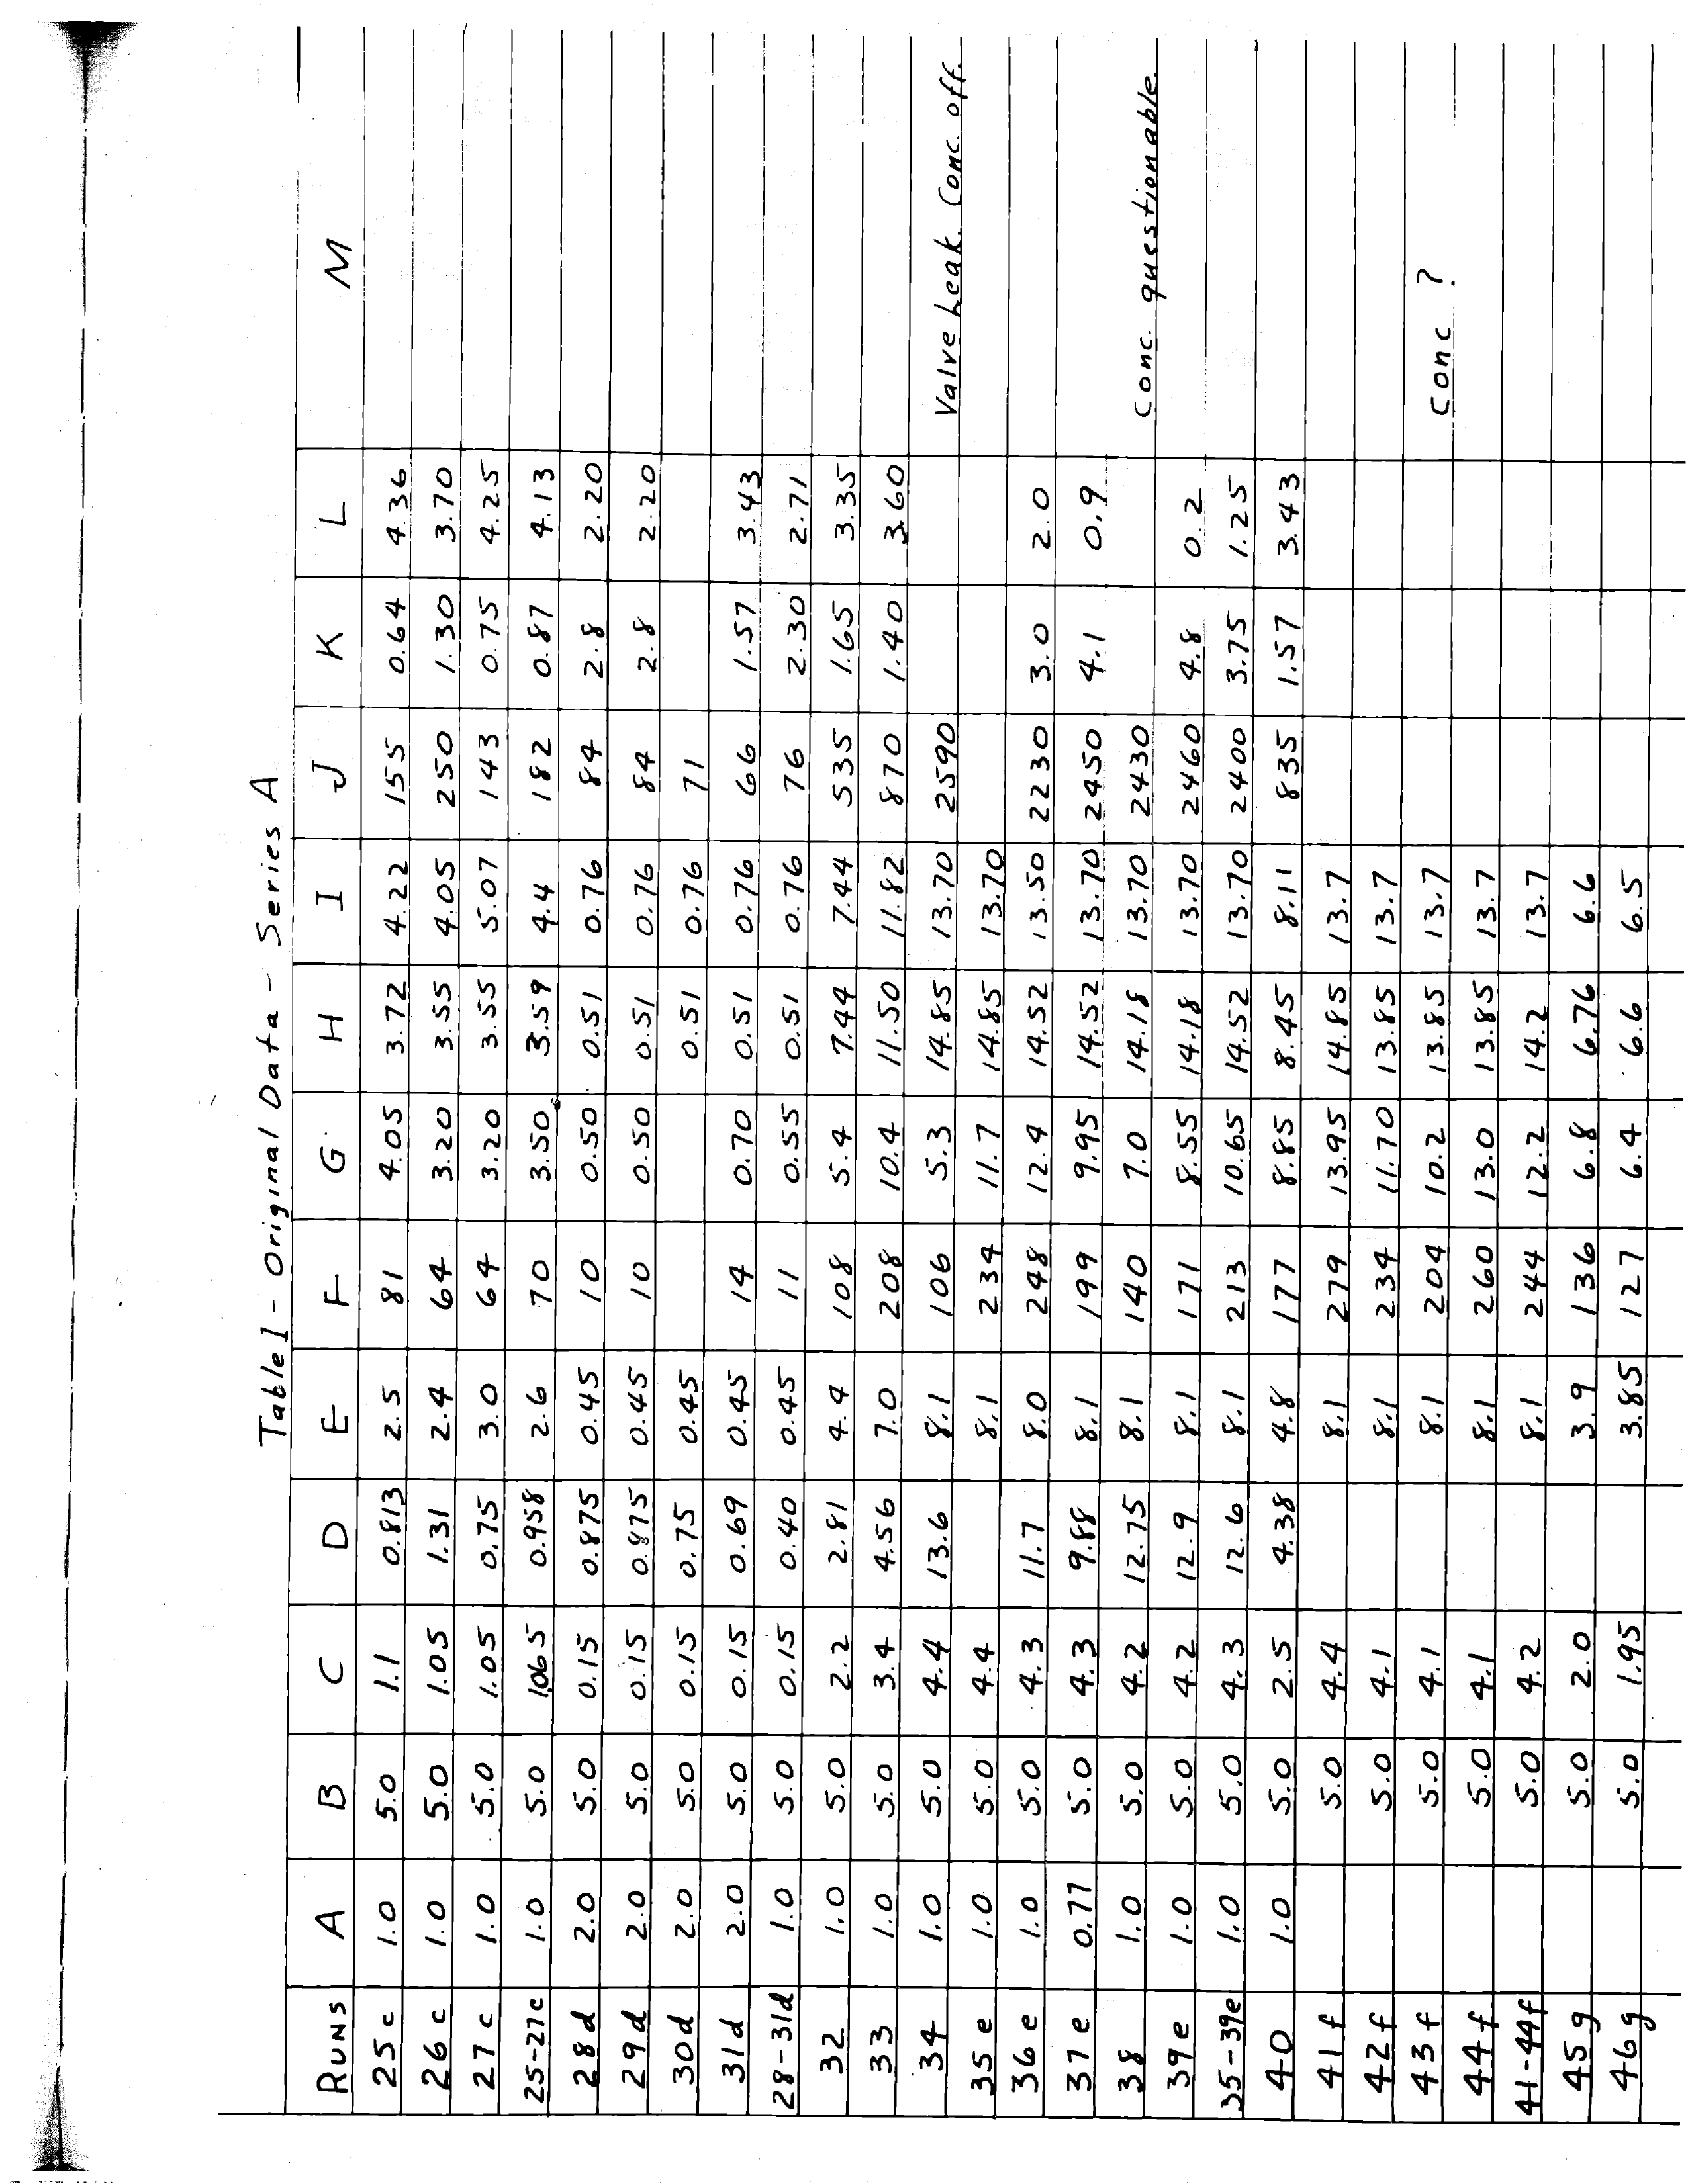 Table 1 - Original Data - Series A
RUNS A B C D E F G H I J K L M
25 c 1.0 5.0 1.1 0.813 2.5 81 4.05 3.72 4.22 155 0.64 4.36
26 c 1.0 5.0 1.05 1.31 2.4 64 3.20 3.55 4.05 250 1.30 3.70
27 c 1.0 5.0 1.05 0.75 3.0 64 3.20 3.55 5.07 143 0.75 4.25
25-27c 1.0 5.0 1.065 0.958 2.6 70 3.50 3.59 4.4 182 0.87 4.13
28 d 2.0 5.0 0.15 0.875 0.45 10 0.50 0.51 0.76 84 2.8 2.20
29 d 2.0 5.0 0.15 0.875 0.45 10 0.50 0.51 0.76 84 2.8 2.20
30 d 2.0 5.0 0.15 0.75 0.45 0.51 0.76 71
31 d 2.0 5.0 0.15 0.69 0.45 14 0.70 0.51 0.76 66 1.57 3.43
28-31d 1.0 5.0 0.15 0.40 0.45 11 0.55 0.51 0.76 76 2.30 2.71
32 1.0 5.0 2.2 2.81 4.4 108 5.4 7.44 7.44 535 1.65 3.35
33 1.0 5.0 3.4 4.56 7.0 208 10.4 11.50 11.82 870 1.40 3.60
34 1.0 5.0 4.4 13.6 8.1 106 5.3 14.85 13.70 2590 Valve Leak. Conc. off.
35 e 1.0 5.0 4.4 8.1 234 11.7 14.85 13.70
36 e 1.0 5.0 4.3 11.7 8.0 248 12.4 14.52 13.50 2230 3.0 2.0
37 e 0.77 5.0 4.3 9.88 8.1 199 9.95 14.52 13.70 2450 4.1 0.9
38 1.0 5.0 4.2 12.75 8.1 140 7.0 14.18 13.70 2430 Conc. questionable.
39 e 1.0 5.0 4.2 12.9 8.1 171 8.55 14.18 13.70 2460 4.8 0.2
35-39e 1.0 5.0 4.3 12.6 8.1 213 10.65 14.52 13.70 2400 3.75 1.25
40 1.0 5.0 2.5 4.38 4.8 177 8.85 8.45 8.11 835 1.57 3.43
41 f 5.0 4.4 8.1 279 13.95 14.85 13.7
42 f 5.0 4.1 8.1 234 11.70 13.85 13.7
43 f 5.0 4.1 8.1 204 10.2 13.85 13.7 Conc ?
44 f 5.0 4.1 8.1 260 13.0 13.85 13.7
41-44f 5.0 4.2 8.1 244 12.2 14.2 13.7
45 g 5.0 2.0 3.9 136 6.8 6.76 6.6
46 g 5.0 1.95 3.85 127 6.4 6.6 6.5